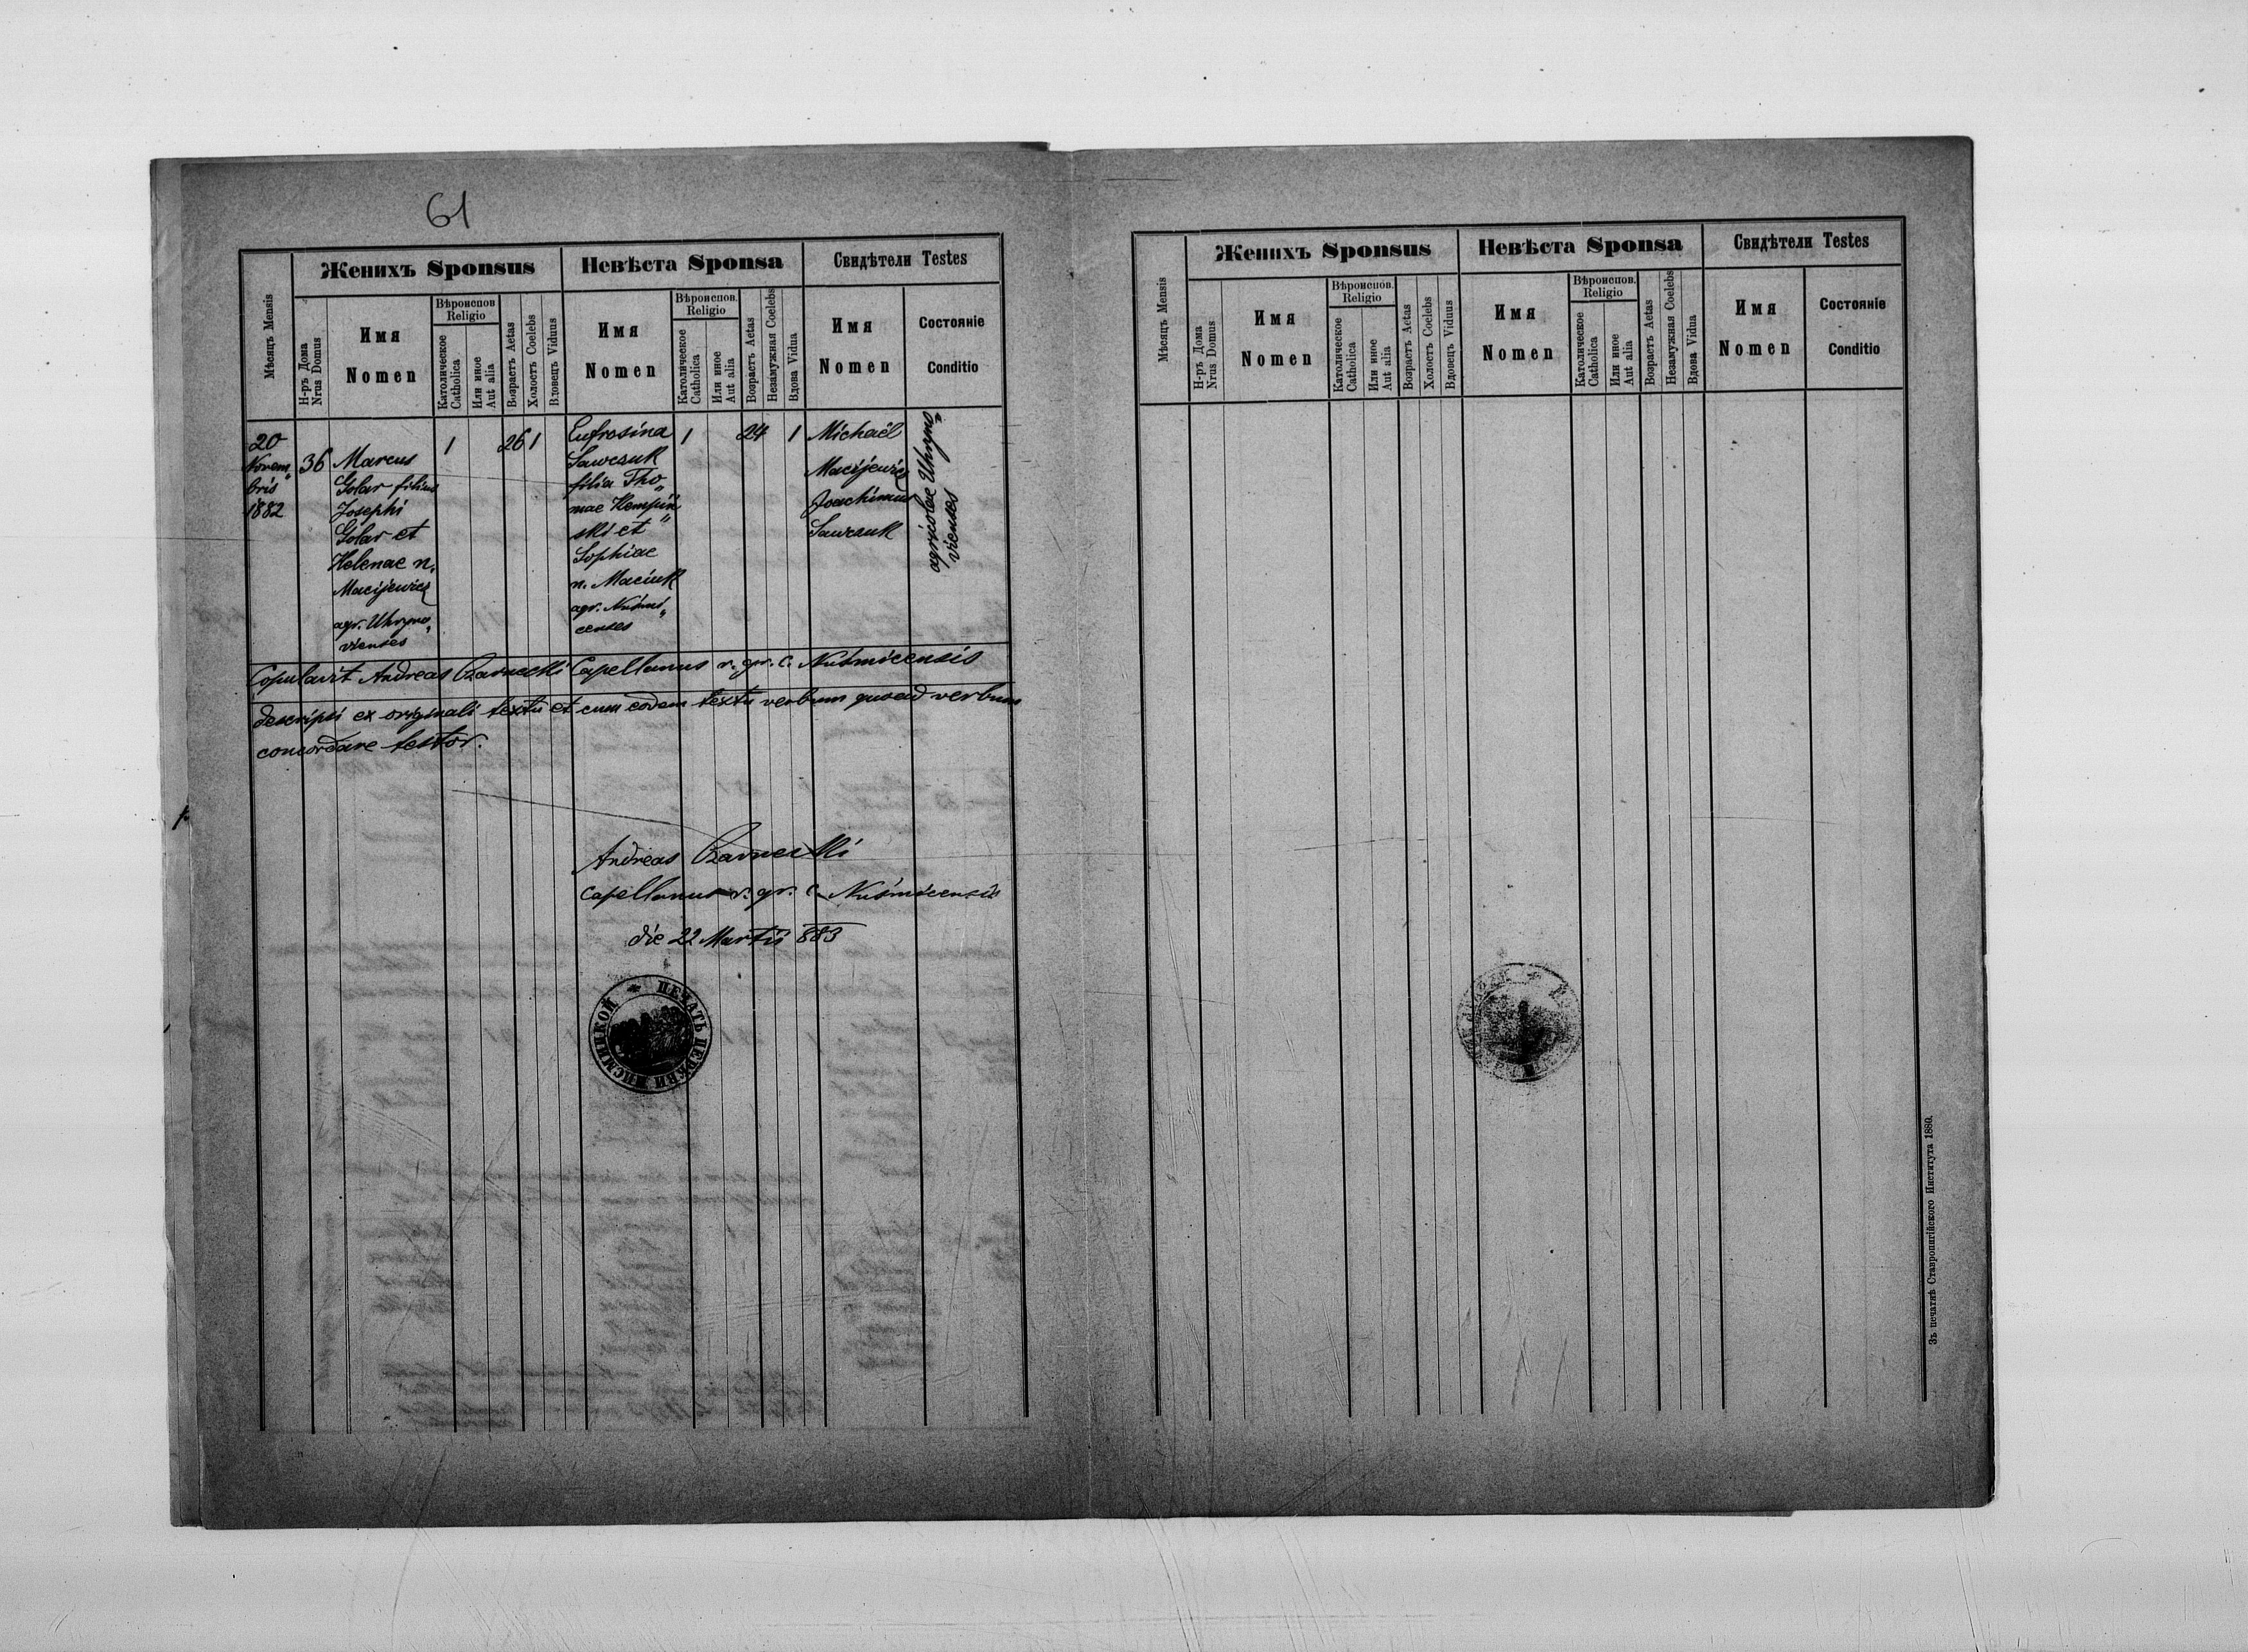 61
Мѣсяцъ Mensis
Женихъ Sponsus
Невѣста Sponsa
Свидѣтели Testes
Н-ръ Дома
Nrus Domus
Имя
Nomen
Вѣроиспов
Religio
Католическое
Catholica
Или иное
Aut alia
Возрастъ Aetas
Холостъ Coelebs
Вдовецъ Viduus
Имя
Nomen
Вѣроиспов.
Religio
Католическое
Catholica
Или иное
Aut alia
Возрастъ Aetas
Незамужная Coelebs
Вдова Vidua
Имя
Nomen
Состояніе
Conditio
20
Novem„
bris
1882
36
Marcus
Golar filius
Josephi
Golar et
Helenae n.
Macijewicz
agr. Uhryno„
vienses
1
26
1
Eufrosina
Sawczuk
filia Tho„
mae Hempiń„
ski et
Sophiae
n. Maciuk
agr. Nuśmi„
censes
1
24
1
Michaël
Macijewicz
Joachimus
Sawczuk
agricolae Uhryno„
vienses
Copulavit Andreas Czarnecki Capellanus r. gr. c. Nuśmicensis
Descripsi ex originali textu et cum eodem textu verbum quoad verbum
concordare testor.
Andreas Czarnecki
Capellanus r. gr. c. Nuśmicensis
die 22 Martii 883
ПЕЧАТЬ ЦЕРКВИ НИСМИЦКОЙ
Мѣсяцъ Mensis
Женихъ Sponsus
Невѣста Sponsa
Свидѣтели Testes
Н-ръ Дома
Nrus Domus
Имя
Nomen
Вѣроиспов.
Religio
Католическое
Catholica
Или иное
Aut alia
Возрастъ Aetas
Холостъ Coelebs
Вдовецъ Viduus
Имя
Nomen
Вѣроиспов.
Religio
Католическое
Catholica
Или иное
Aut alia
Возрастъ Aetas
Незамужная Coelebs
Вдова Vidua
Имя
Nomen
Состояніе
Conditio
Зъ печатнѣ Ставропигійского Института 1880.